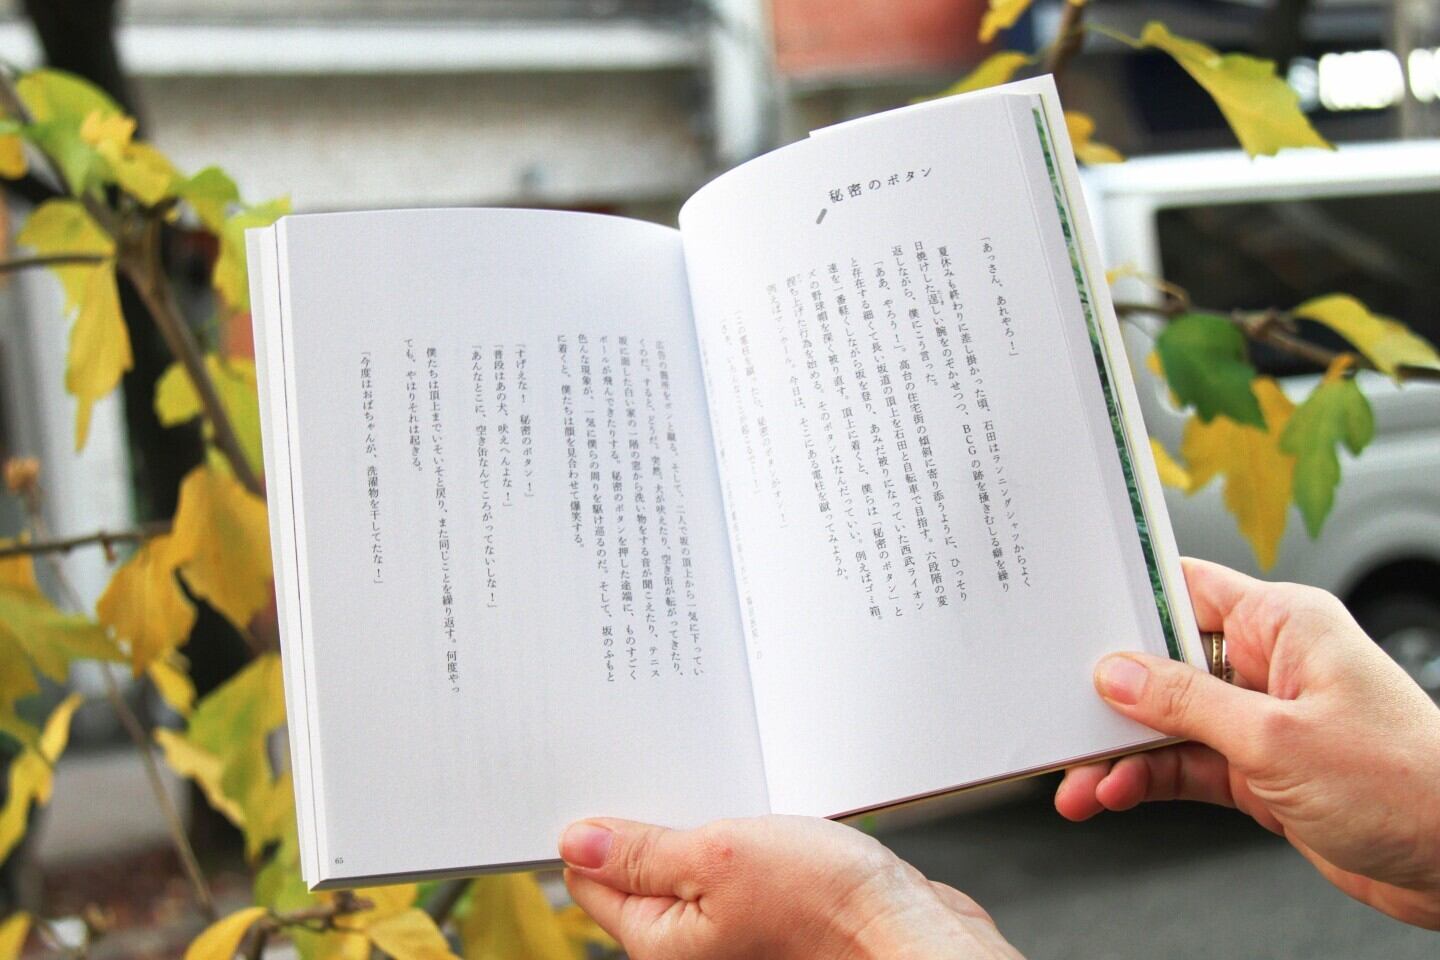 秘密のボタン
「あっさん、あれやろ!」
夏休みも終わりに差し掛かった頃、石田はランニングシャツからよく
日焼けした逞しい腕をのぞかせつつ、BCGの跡を掻きむしる癖を繰り
返しながら、僕にこう言った。
「ああ、やろう!」。高台の住宅街の傾斜に寄り添うように、ひっそり
と存在する細くて長い坂道の頂上を石田と自転車で目指す。六段階の変
速を一番軽くしながら坂を登り、あみだ被りになっていた西武ライオン
ズの野球帽を深く被り直す。頂上に着くと、僕らは「秘密のボタン」と
捏ち上げた行為を始める。そのボタンはなんだっていい。例えばゴミ箱。
例えばマンホール。今日は、そこにある電柱を蹴ってみようか。
「この電柱を蹴ったら、秘密のボタンがオン!」
「さあ、いろんなことが起こるぞー!」
広告の箇所をポンと蹴る。そして、二人で坂の頂上から一気に下ってい
くのだ。すると、どうだ。突然、犬が吠えたり、空き缶が転がってきたり、
坂に面した白い家の一階の窓から洗い物をする音が聞こえたり、テニス
ボールが飛んできたりする。秘密のボタンを押した途端に、ものすごく
色んな現象が、一気に僕らの周りを駆け巡るのだ。そして、坂のふもと
に着くと、僕たちは顔を見合わせて爆笑する。
「すげえな! 秘密のボタン!」
「普段はあの犬、吠えへんよな!」
「あんなとこに、空き缶なんてころがってないしな!」
僕たちは頂上までいそいそと戻り、また同じことを繰り返す。何度やっ
ても、やはりそれは起きる。
「今度はおばちゃんが、洗濯物を干してたな!」
65